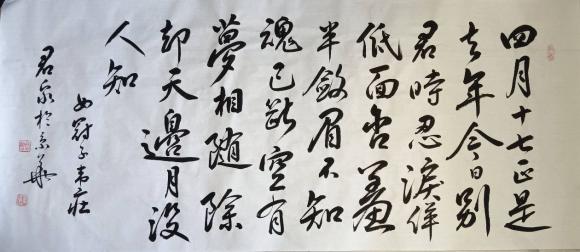 四月十七正是
去年今日别
君時忍淚佯
低面含羞
半斂眉不知
魂已断空有
夢相隨除
却天邊月没
人知
女冠子韋莊
君泉於京華